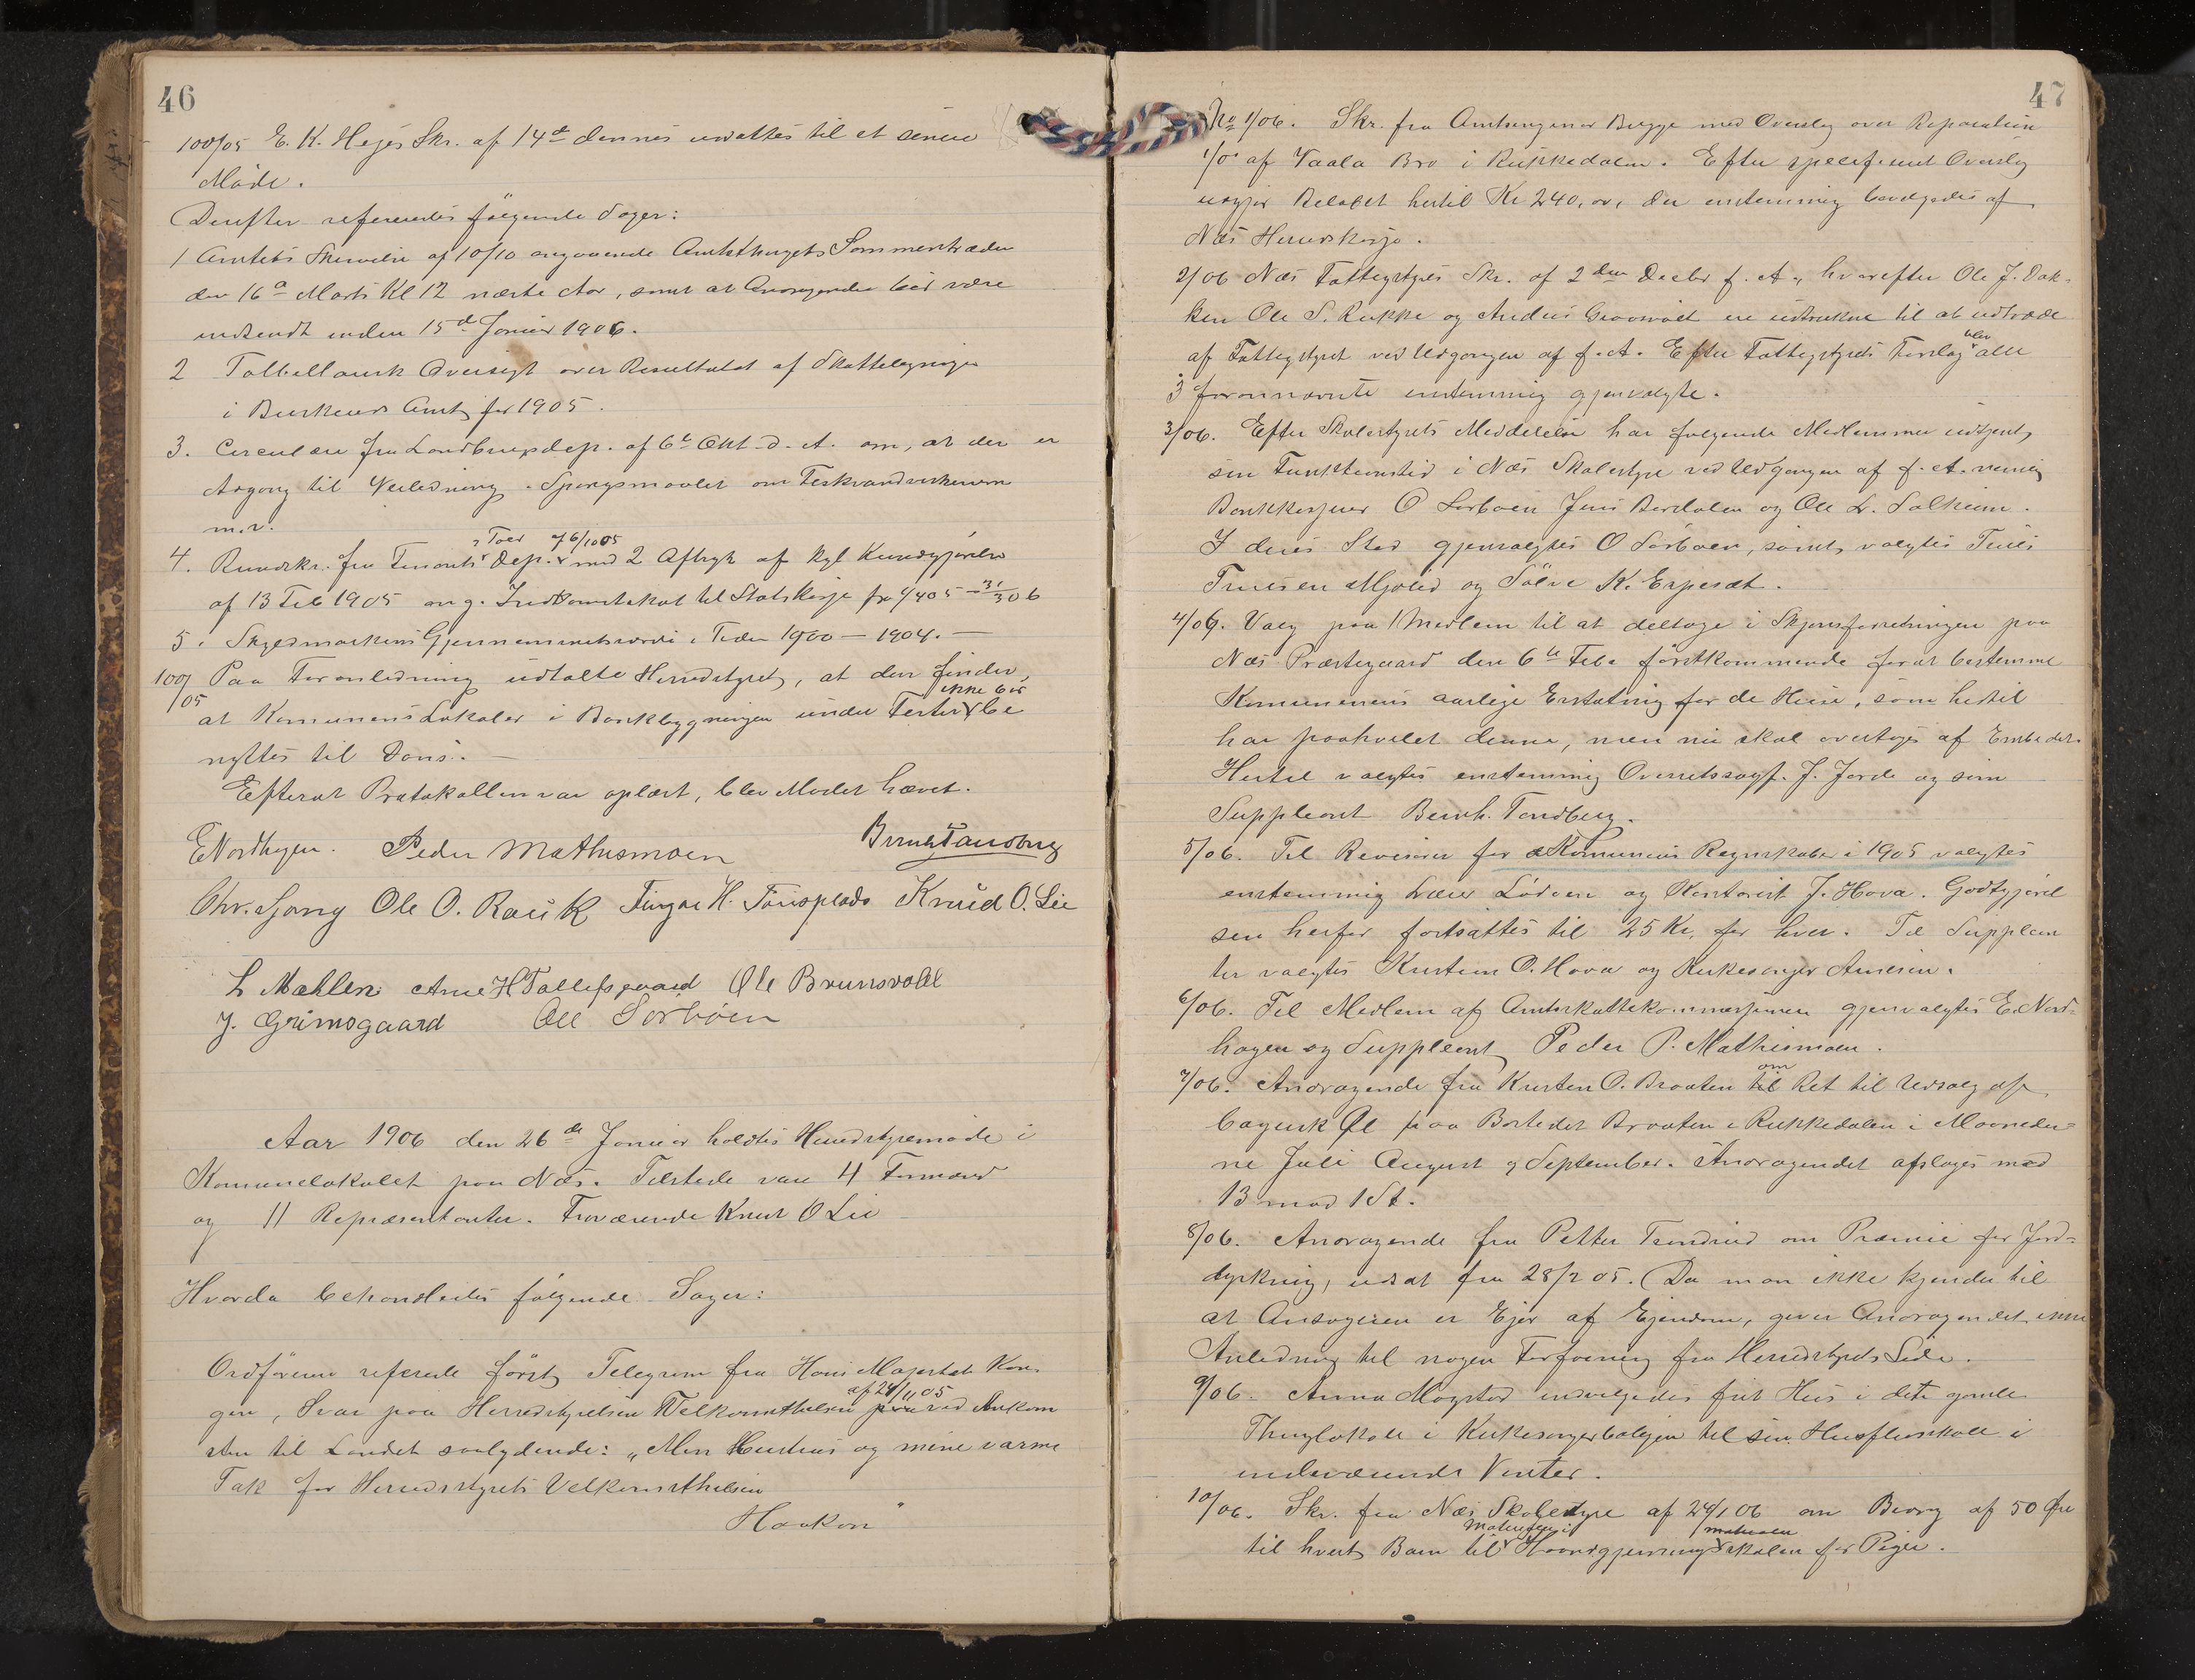 46
100/05 E. K. Hejes Skr. af 14de dennes udsattes til et senere
Møde.
Derefter refereredes følgende Sager:
1 Amtets Skrivelse af 10/10 angaaende Amtsthingets Sammentræden
den 16de Marts Kl 12 næste Aar, samt at Andragender bør være
indsendt inden 15de Januar 1906.
2 Tabellarisk Oversigt over Resultatet af Skattelegningen
i Buskeruds Amt for 1905.
3. Circulære fra Landbrugsdep. af 6te Okt. d. A. om, at der er
Adgang til Veiledning i Spørgsmaalet om Ferskvandsfiskerierne
m.v.
4. Rundskr. fra Finants & Told Dep. af 6/10 05 med 2 Aftryk af Kgl Kundgjørelse
af 13 Feb 1905 ang. Indkomstskat til Statskasse fra 1/4 05 – 31/3 06
5. Skyldmarkens Gjennemsnitsværdi i Tiden 1900 – 1904. —
100/05 Paa Foranledning udtalte Herredstyret, at den finder,
at Komunens Lokaler i Bankbygningen under Fester ikke bør be
nyttes til Dans. —
Efterat Protokollen var oplæst, blev Mødet hævet.
E Nordhagen. Peder Mathismoen Bernh Tandberg
Chr. Sjong Ole O. Rauk Torgar H. Tonsplads Knud O. Lie
L Mahlen Arne H Tollefsgaard Ole Brunsvold
J. Grimsgaard Ole Sorbøen
Aar 1906 den 26de Januar holdtes Herredstyremøde i
Komunelokalet paa Næs. Tilstede var 4 Formænd
og 11 Repræsentanter. Fraværende Knut O Lie
Hvorda behandledes følgende Sager:
Ordføreren refererte først Telegram fra Hans Majestæt Kon
gen, Svar paa Herredstyrelsens Velkomsthilsen af 24/11 05 ved Ankom
sten til Landet saalydende: „Min Hustrus og mine varme
Tak for Herredsstyrets Velkomsthilsen
Haakon"
47
No 1/06. Skr. fra Amtsingeniør Bugge med Overslag over Reparation
1/01 af Vaala Bro i Rukkedalen. Efter specificeret Overslag
udgjør Beløbet hertil Kr 240,00, der enstemmig bevilgedes af
Næs Herredskasse.
2/06 Næs Fattigstyres Skr. af 2den Decbr f. A., hvorefter Ole J. Dok-
ken Ole S. Rukke og Andreas Graavold ere udtrukne til at udtræde
af Fattigstyret ved Udgangen af f. A. Efter Fattigstyrets Forslag blev alle
3 forannævnte enstemmig gjenvalgte.
3/06. Efter Skolestyrets Meddelelse har følgende Medlemmer udtjent
sin Funktionstid i Næs Skolestyre ved Udgangen af f. A. nemlig
Bankkasserer O Sorbøen Jens Berdalen og Ole L. Solheim.
I deres Sted gjenvalgtes O Sorbøen, samt valgtes Truls
Trulsen Mjølid og Sølve K. Espeset.
4/06. Valg paa 1 Medlem til at deltage i Skjønsforretningen paa
Næs Præstegaard den 6te Feb. førstkommende for at bestemme
Komunenens aarlige Erstatning for de Huse, som hidtil
har paahvilet denne, men nu skal overtages af Embedet.
Hertil valgtes enstemmig Overretssagf. J. Jorde og som
Suppleant Bernh. Tandberg.
5/06. Til Revisorer for Komunens Regnskaber i 1905 valgtes
enstemmig Lærer Lødøen og Kontorist J. Hova. Godtgjørel
sen herfor fortsattes til 25 Kr. for hver. Til Supplean
ter valgtes Kristian O. Hova og Kirkesanger Arnesen.
6/06. Til Medlem af Amtsskattekommissjonen gjenvalgtes E. Nord-
hagen og Suppleant Peder P. Mathismoen.
7/06. Andragende fra Kristen O. Braaten om Ret til Udsalg af
bayersk Øl paa Bostedet Braaten i Rukkedalen i Maaneder-
ne Juli August og September. Andragendet afsloges med
13 mod 1 St.
8/06. Andragende fra Petter Trondrud om Præmie for Jord-
dyrkning, udsat fra 28/2 05. Da man ikke kjender til
at Ansøgeren er Ejer af Ejendom, giver Andragendet ikke
Anledning til nogen Forføining fra Herredstyrets Side.
9/06. Anna Mogstad indvilgedes frit Hus i det gamle
Thinglokale i Kirkesangerboligen til sin Husflidsskole i
indeværende Vinter.
10/06. Skr. fra Næs Skolestyre af 24/1 06 om Bidrag af 50 Øre
til hvert Barn til Materialer i Haandgjerningsskolen for Piger.